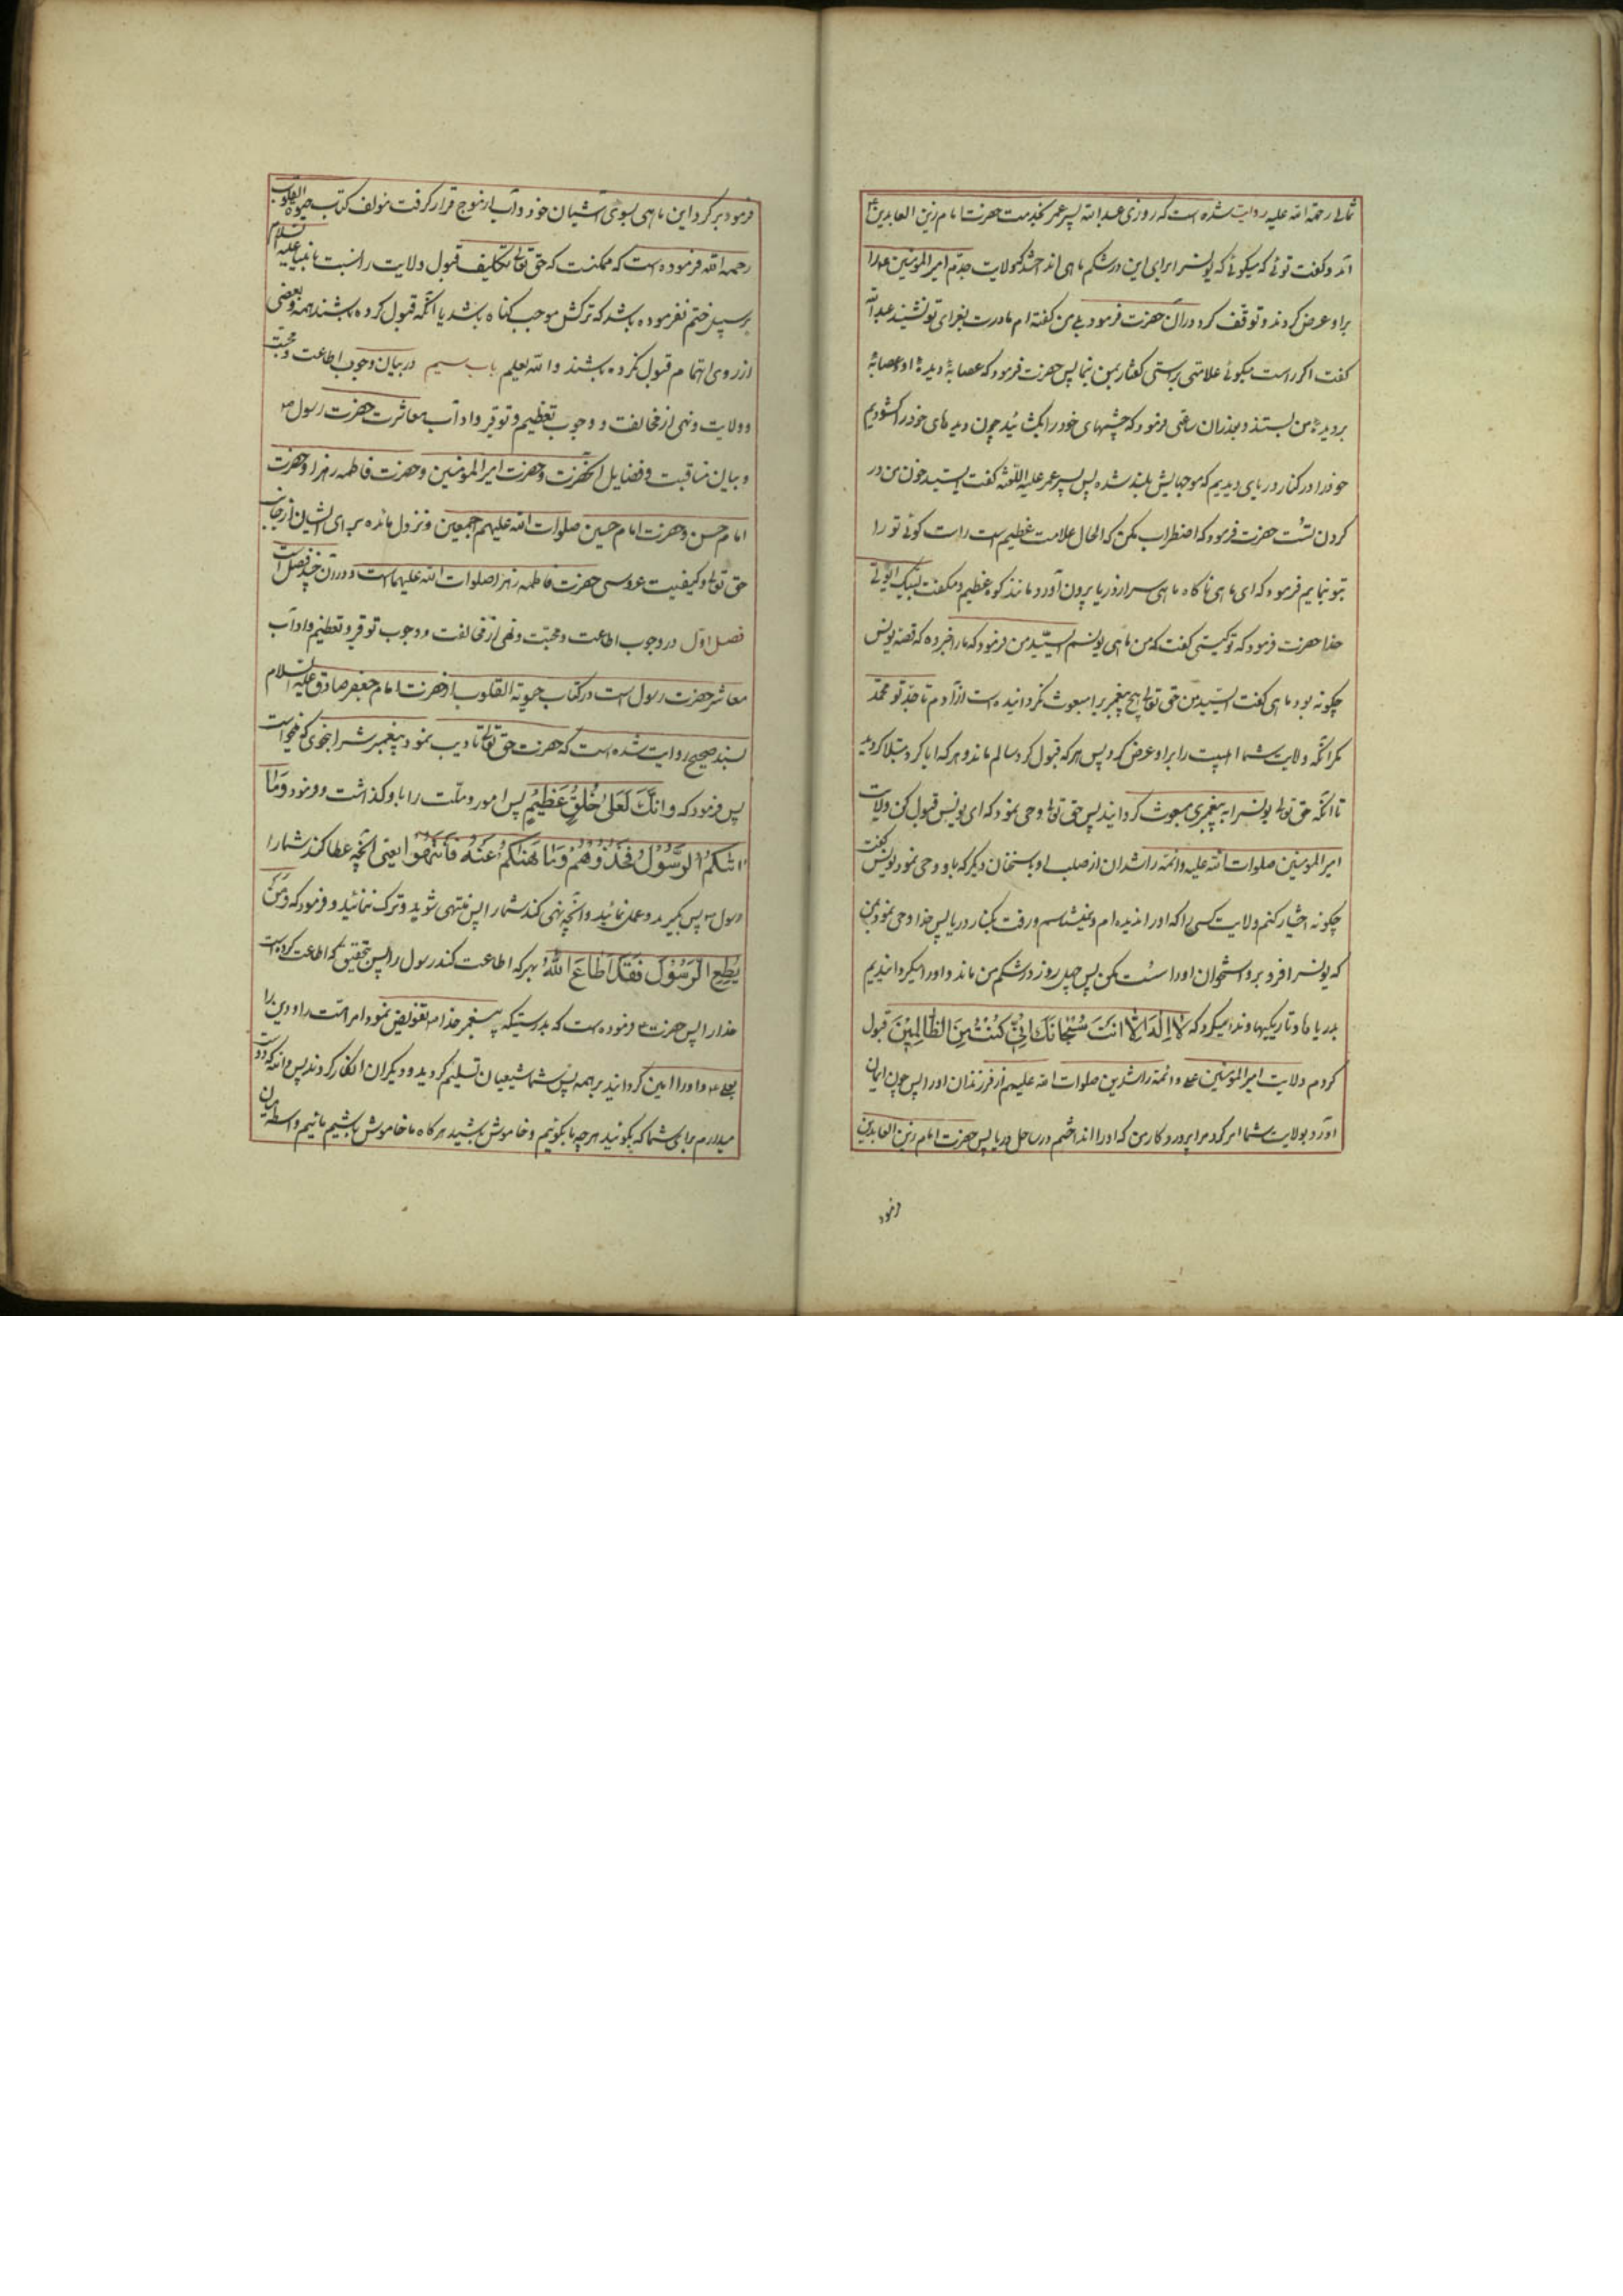 ثمالی رحمة الله علیه روایت شده است که روزی عبد الله پسر عمر بخدمت حضرت امام زین العابدین ع
آمد و گفت توئی که میگوئی که یونس را برای این در شکم ماهی انداختند که ولایت جدّم امیر المومنین ع را
براو عرض کردند و توقف کرد دران حضرت فرمود بلی من گفته ام مادرت بعزای تو نشیند عبد الله
گفت اگر راست میگوئی علامتی بر راستی گفتار بمن بنما پس حضرت فرمود که عصابهٔ دیدهٔ او عصابهٔ
بر دیدهٔ من بستند و بعد از ان ساعتی فرمود که چشمهای خود را بگشائید چون دیده های خود را کشودیم
خود را در کنار دریای دیدیم که موجهایش بلند شده پس پسر عمر علیه اللعنه گفت ای سید خون من در
کردن تست حضرت فرمود که اضطراب مکن که الحال علامت عظیم است راست گوئی تو را
بتو بنمایم فرمود که ای ماهی ناگاه ماهی سر از دریا بیرون آورد مانند کوه عظیم و میگفت لبیک ای ولی
خدا حضرت فرمود که تو کیستی گفت که من ماهی یونسم ای سید من فرمود که ما را خبر ده که قصهٔ یونس
چگونه بود ماهی گفت ای سید من حق تعالی هیچ پیغمبر برا مبعوث نگردانیده است از آدم تا جدّ تو محمّد
مگر آنکه ولایت شما اهلبیت را براو عرض کرد پس هر که قبول کرد سالم ماند و هر که ابا کرد مبتلا کردید
تا آنکه حق تعالی یونس را به پیغمبری مبعوث کردانید پس حق تعالی وحی نمود که ای یونس قبول کن ولایت
امیر المومنین صلوات الله علیه و ائمهٔ راشدان از صلب او با سخنان دیگر که باو وحی نمود یونس گفت
چگونه اختیار کنم ولایت کسی را که او را ندیده ام و نمیشناسم و رفت بکنار دریا پس خدا وحی نمود بمن
که یونس را فرو بر و استخوان او را سست مکن پس چهل روز در شکم من ماند و او را میگردانیدیم
بدریاها و تاریکیها و ندا میکرد که لَا اِلٰهَ اِلَّا اَنْتَ سُبْحَانَكَ اِنِّي كُنْتُ مِنَ الظَّالِمِيْنَ قبول
کردم ولایت امیر المومنین علی و ائمهٔ راشدین صلوات الله علیهم از فرزندان او را پس چون ایمان
آورد بولایت شما امر کرد مرا پروردگار من که او را انداختم در ساحل دریا پس حضرت امام زین العابدین
فرمود
فرمود برگرد این ماهی بسوی آشیان خود و آب از موج قرار گرفت مولف کتاب حیوة القلوب
رحمه الله فرموده است که ممکنست که حق تعالی تکلیف قبول ولایت را نسبت بانبیا علیه السلام
بر سبیل ختم نفرموده باشد که ترکش موجب گناه باشد یا آنکه قبول کرده باشند همه و بعضی
از روی اهتمام قبول نکرده باشند و الله یعلم باب سیم در بیان وجوب اطاعت و محبت
و ولایت و نهی از مخالفت و وجوب تعظیم و توقیر و اداب معاشرت حضرت رسول ص
و بیان مناقبت و فضایل آنحضرت و حضرت امیر المومنین و حضرت فاطمه زهرا و حضرت
امام حسن و حضرت امام حسین صلوات الله علیهم اجمعین و نزول مائده برای ایشان از جانب
حق تعالی و کیفیت عروسی حضرت فاطمه زهرا صلوات الله علیهما است و دران چند فصل است
فصل اول در وجوب اطاعت و محبّت و نهی از مخالفت و وجوب توقیر و تعظیم و اداب
معاشر حضرت رسول است در کتاب حیوة القلوب از حضرت امام جعفر صادق علیه السلام
بسند صحیح روایت شده است که حضرت حق تعالی تادیب نمود پیغمبرش را بنحوی که میخواست
پس فرمود که وَاِنَّكَ لَعَلىٰ خُلُقٍ عَظِيْمٍ پس امور و ملّت را باو گذاشت و فرمود وَمَا
اٰتٰكُمُ الرَّسُوْلُ فَخُذُوْهُمْ وَمَا نَهٰكُمْ عَنْهُ فَانْتَهُوْا یعنی آنچه عطا کند شما را
رسول ص پس بگیرید و عمل نمائید و آنچه نهی کند شما را پس منتهی شوید و ترک نمائید و فرمود که وَمَنْ
يُطِعِ الرَّسُوْلَ فَقَدْ اَطَاعَ اللّٰهَ هر که اطاعت کند رسول را پس بتحقیق که اطاعت کرده است
خدا را پس حضرت ع فرموده است که بدرستیکه پیغمبر خدا ص تفویض نمود امر امّت را و دین را
بعلی ع و او را امین گردانید بر همه پس شما شیعیان تسلیم کردید و دیگران انکار کردند پس والله که دوست
میدارم برای شما که بگوئید هر چه ما بگوئیم و خاموش باشید هر گاه ما خاموش باشیم مائیم واسطه میان